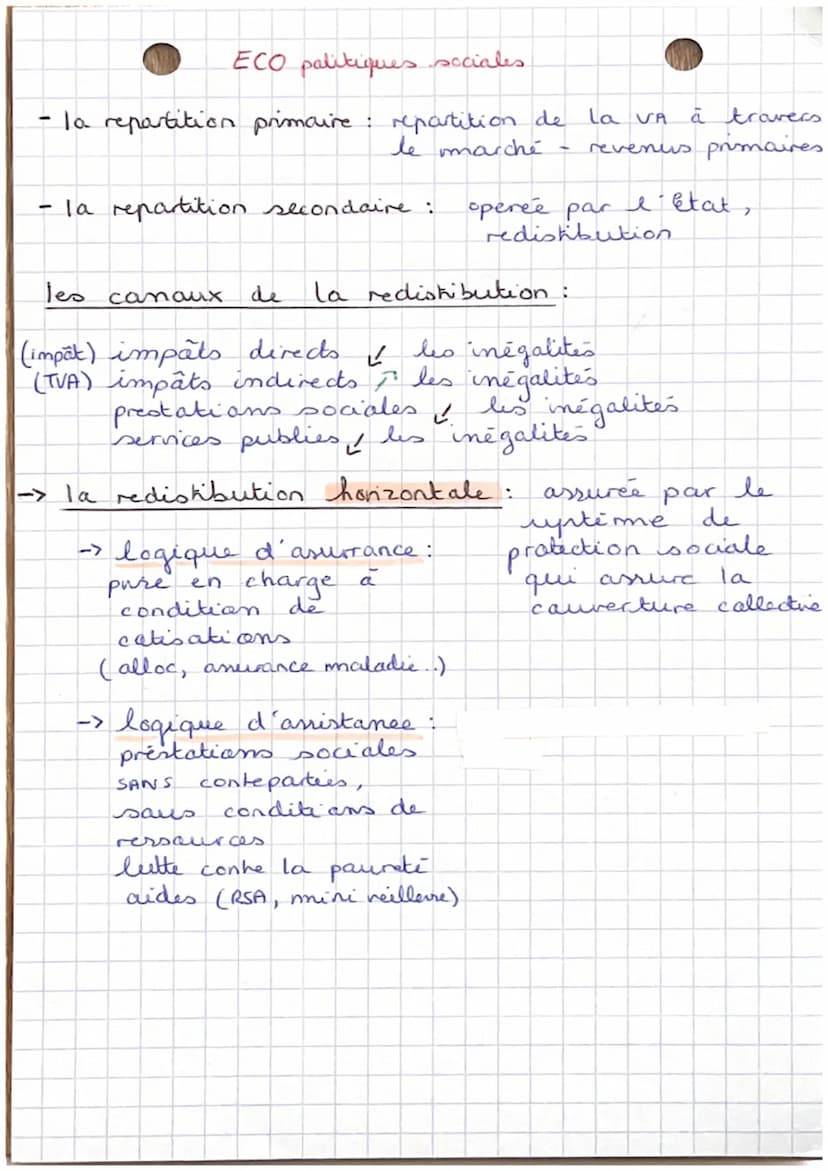 ECO politiques sociales
- la repartition primaire : repartition de la VA à travers
le marché - revenus primaires
- la repartition secondaire : opereé par l'État,
redistibution
les canaux de la redistribution :
(impôt) impôts directs ↙ les inégalités
(TVA) impôts indirects ↗ les inégalités
prestations sociales ↙ les inégalités
services publics ↙ les inégalités
-> la redistribution horizontale : assurée par le
système de
protection sociale
qui assure la
couverture collective
-> logique d'assurance :
prise en charge à
condition de
cotisations
(alloc, assurance maladie..)
-> logique d'assistance :
préstations sociales
SANS conteparties,
sous conditions de
ressources
lutte contre la pauvreté
aides (RSA, mini vieillesse)